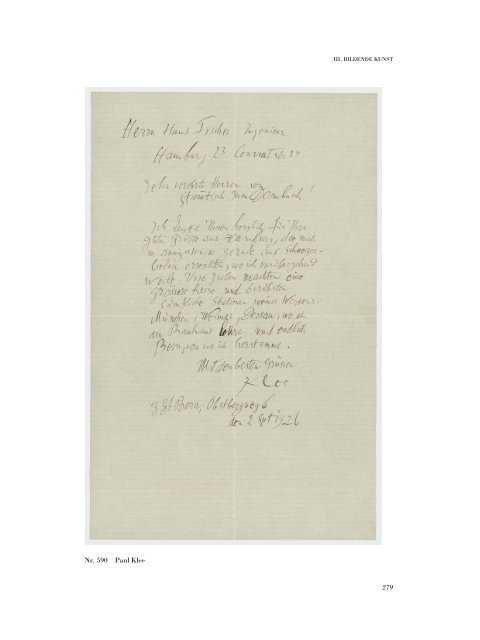 III. BILDENDE KUNST
Herrn Hans Fischer Ingenieur
Hamburg 23 Conventstr. 24
Sehr verehrte Herren vom
Stammtisch zum
Ich danke Ihnen herzlich für Ihre
guten Grüsse aus Hamburg, die mich
in gerade auf schweizer-
boden erreichten, wo ich vorübergehend
weile. Ihre Zeilen machten eine
grössere Reise und berührten
sämtliche Stationen meines Wesens:
München, Weimar, Dessau, wo ich
am Bauhaus lehre, und endlich
Bern, von wo ich herstamme.
Mit den besten Grüssen
Klee
z Zt Bern, Obstbergweg 6
den 2. Spt 1926
Nr. 590 Paul Klee
279